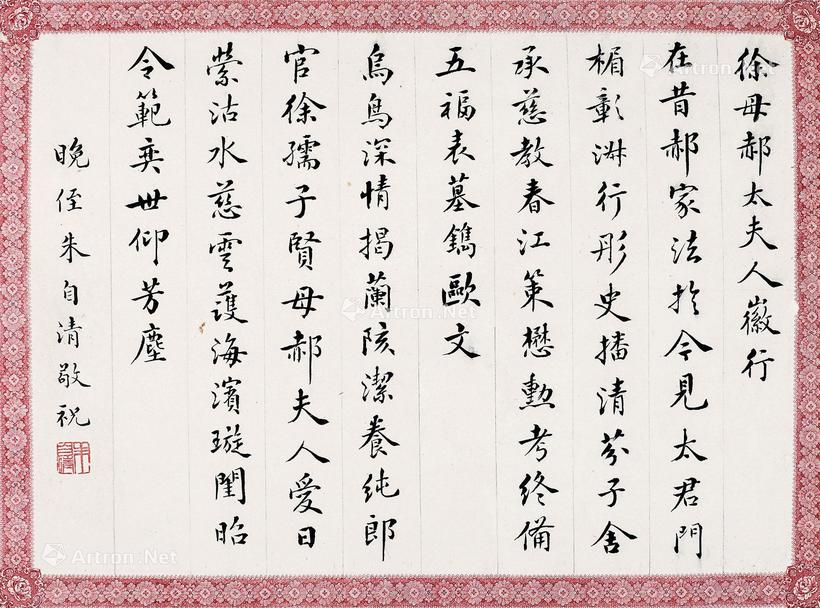 徐母郝太夫人徽行
在昔郝家法於今見太君門
楣彰淑行彤史播清芬子舍
承慈教春江策懋勳考終備
五福表墓鐫歐文
烏鳥深情揭蘭陔潔養純郎
官徐孺子賢母郝夫人愛日
縈沽水慈雲護海濱璇閨昭
令範奕世仰芳塵
晚侄朱自清敬祝
Artron.Net
Artron.Net
Artron.Net
Artron.Net